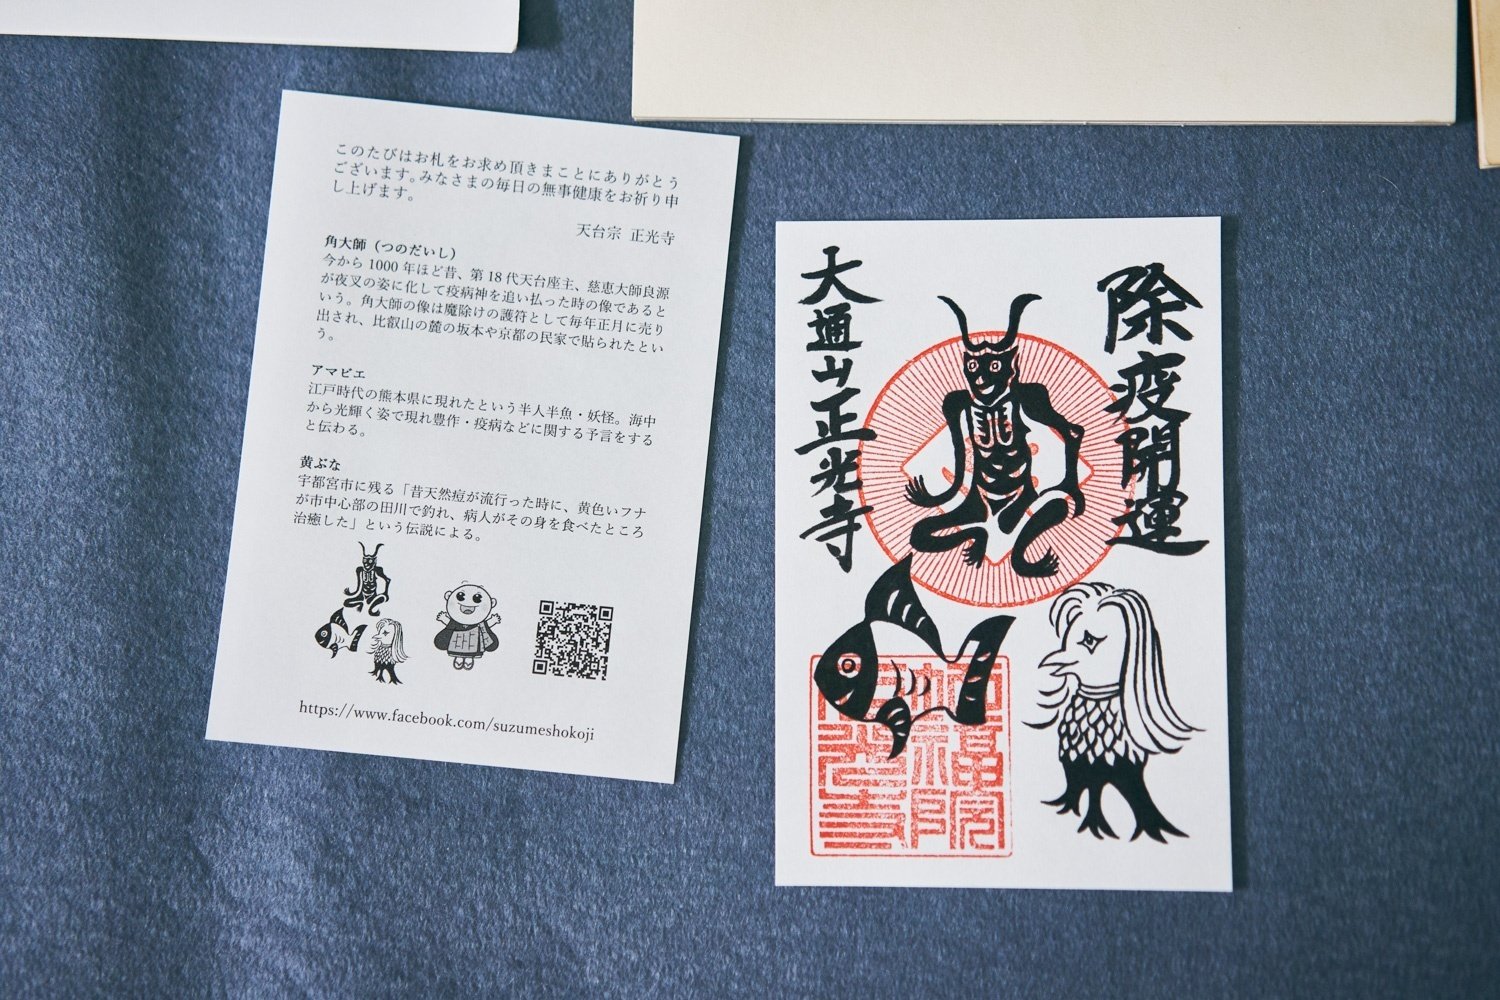 このたびはお札をお求め頂きまことにありがとう
ございます。みなさまの毎日の無事健康をお祈り申
し上げます。
天台宗 正光寺
角大師（つのだいし）
今から 1000 年ほど昔、第 18 代天台座主、慈恵大師良源
が夜叉の姿に化して疫病神を追い払った時の像であると
いう。角大師の像は魔除けの護符として毎年正月に売り
出され、比叡山の麓の坂本や京都の民家で貼られたとい
う。
アマビエ
江戸時代の熊本県に現れたという半人半魚・妖怪。海中
から光輝く姿で現れ豊作・疫病などに関する予言をする
と伝わる。
黄ぶな
宇都宮市に残る「昔天然痘が流行った時に、黄色いフナ
が市中心部の田川で釣れ、病人がその身を食べたところ
治癒した」という伝説による。
https://www.facebook.com/suzumeshokoji
除疫開運
大通山正光寺